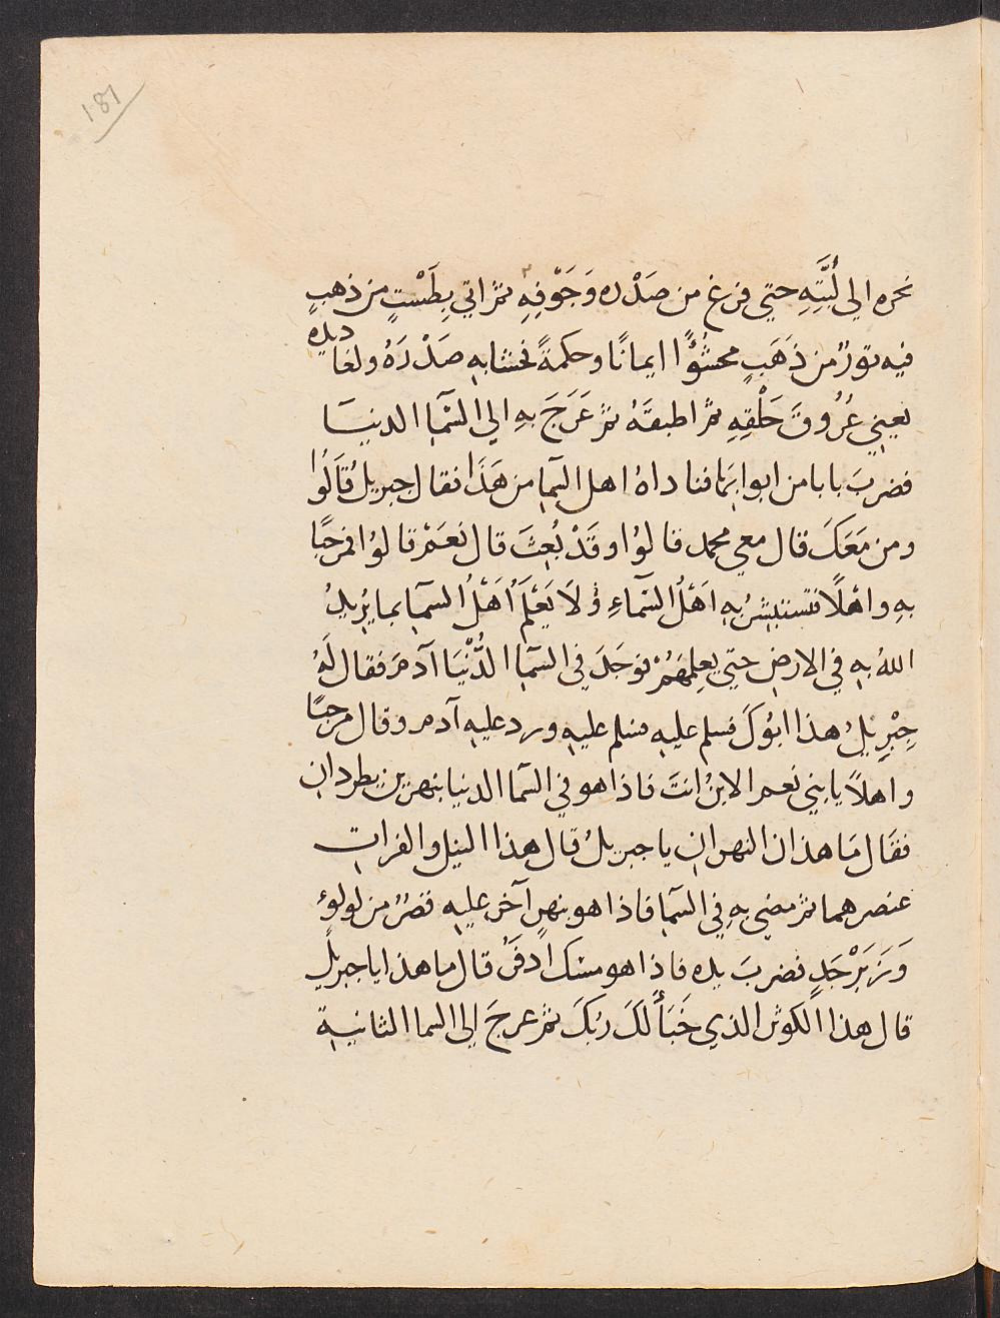 187
نحره الي لُبَّتِهِ حتي فرغ من صَدْره وَجَوْفِهِ ثم اتي بِطَسْتٍ من ذهبٍ
فيه تورٌ من ذَهَبٍ محشُوًّا ايمانًا وحكمةً فحشا به صَدْرَهُ ولغاديده
يعني عُرُوقَ حَلْقِهِ ثم اطبقَهُ ثم عَرَجَ بهِ الي السَّمآ الدنيا
فضربَ بابا من ابوابهَا فناداهُ اهل السمآ من هَذَا فقال جبريلُ قَالُوا
ومن مَعَكَ قال معي محمد قالوُا وقَدْ بُعِثَ قال نعَمْ قالوُا فمرحَبًا
بهِ واهْلًا فتستبشرُ بهِ اَهْلُ السَّمآءِ وْلَا يَعْلَمُ اَهْلُ السمآ بما يُريدُ
اللهُ بهِ في الارضِ حتي يعلِمَهُمْ فوَجَدَ في السمآ الدُّنْيَا آدمَ فقال لَهُ
جِبْرِيلُ هذا ابوُكَ فسلم عليهِ فسلم عليهِ ورد عليهِ آدم وقال مرحبًا
واهلاً يا بني نعم الابنُ انتَ فاذا هو في السمآ الدنيا بنهرين يطردانِ
فقَال مَا هذان النهرانِ يا جبريلُ قال هذا النيل والفراتِ
عنصرهما ثم مضي بهِ في السمآ فاذا هو بنهرٍ آخر عليهِ قصرٌ من لولوءٍ
وَزَبَرْجَدٍ فضربَ يده فاذا هو مسك اَدفَرُ قال ما هذا يا جبريلُ
قال هذا الكوثر الذي خَبَأَ لكَ ربُكَ ثم عرجَ الي السما الثانيةِ